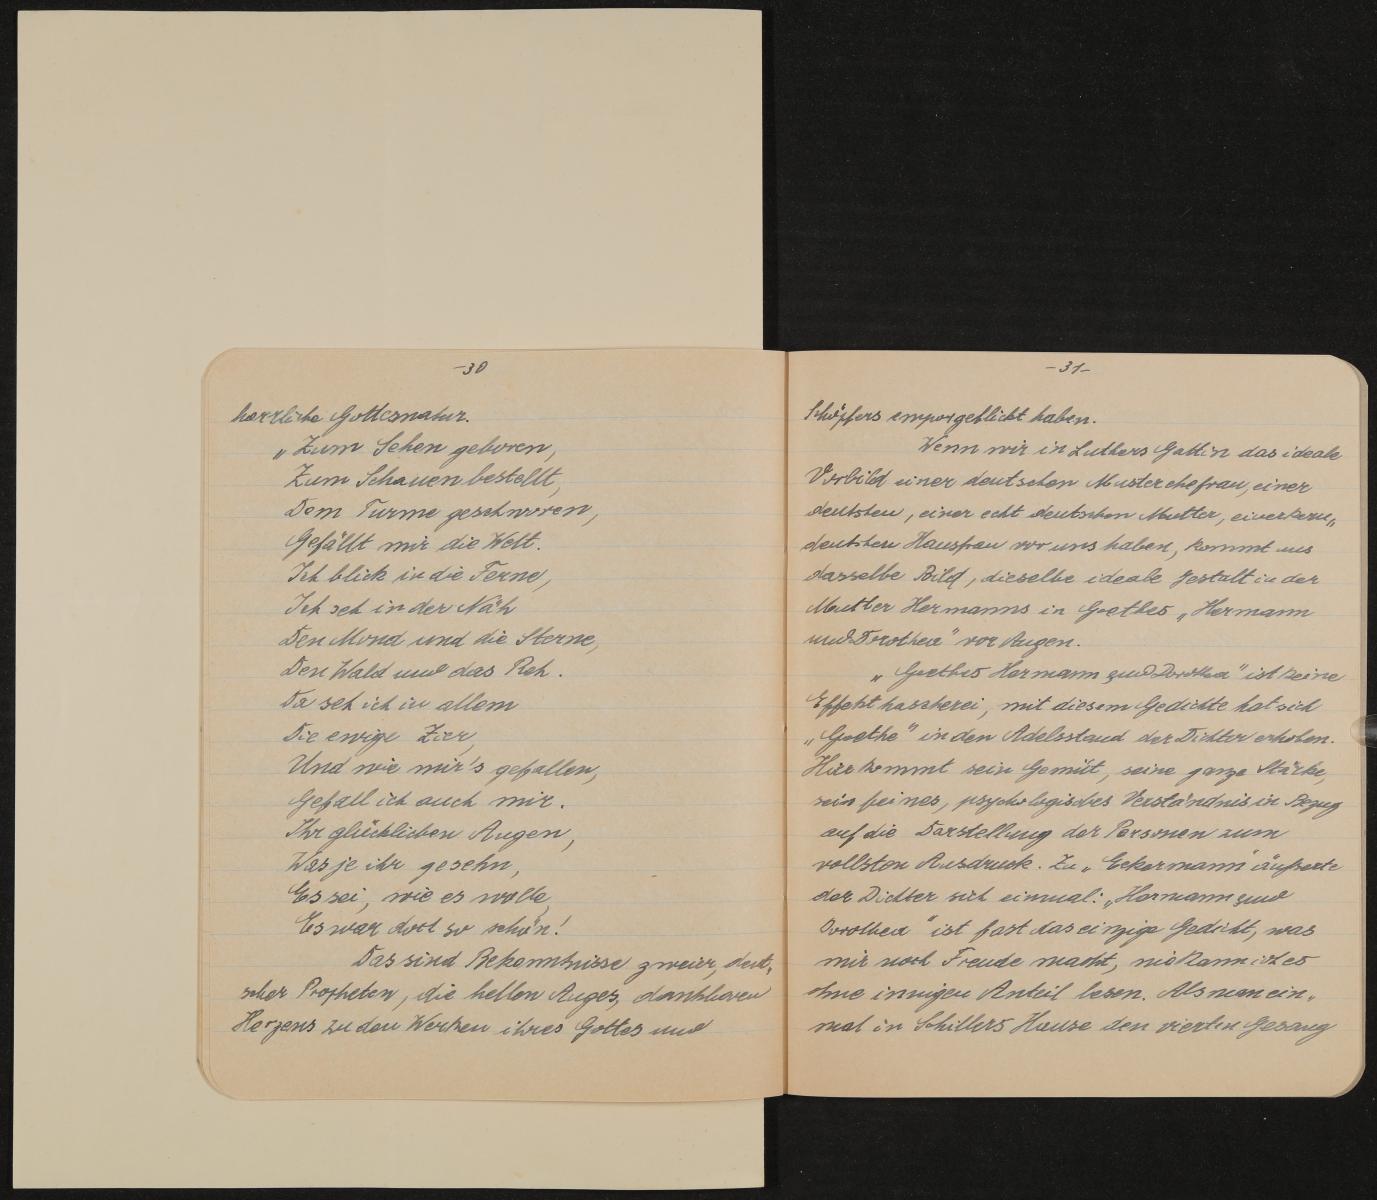 -30
herrliche Gottesnatur.
„Zum Sehen geboren,
Zum Schauen bestellt,
Dem Turme geschworen,
Gefällt mir die Welt.
Ich blick in die Ferne,
Ich seh in der Näh
Den Mond und die Sterne,
Den Wald und das Reh.
Da seh ich in allem
Die ewige Zier,
Und wie mir's gefallen,
Gefall ich auch mir.
Ihr glücklichen Augen,
Was je ihr gesehn,
Es sei, wie es wolle,
Es war doch so schön!
Das sind Bekenntnisse zweier, deut„
scher Propheten, die hellen Auges, dankbaren
Herzens zu den Werken ihres Gottes und
-31-
Schöpfers emporgeblickt haben.
Wenn wir in Luthers Gattin das ideale
Vorbild einer deutschen Musterehefrau, einer
deutschen, einer echt deutschen Mutter, einer kern„
deutschen Hausfrau vor uns haben, kommt uns
dasselbe Bild, dieselbe ideale Gestalt in der
Mutter Hermanns in Goethes „Hermann
und Dorothea" vor Augen.
„Goethes Hermann und Dorothea" ist keine
Effekthascherei, mit diesem Gedichte hat sich
„Goethe" in den Adelsstand der Dichter erhoben.
Hier kommt sein Gemüt, seine ganze Stärke,
sein feines, psychologisches Verständnis in Bezug
auf die Darstellung der Personen zum
vollsten Ausdruck. Zu „Eckermann" äußerte
der Dichter sich einmal: „Hermann und
Dorothea" ist fast das einzige Gedicht, was
mir noch Freude macht, nie kann ich es
ohne innigen Anteil lesen. Als man ein„
mal in Schillers Hause den vierten Gesang